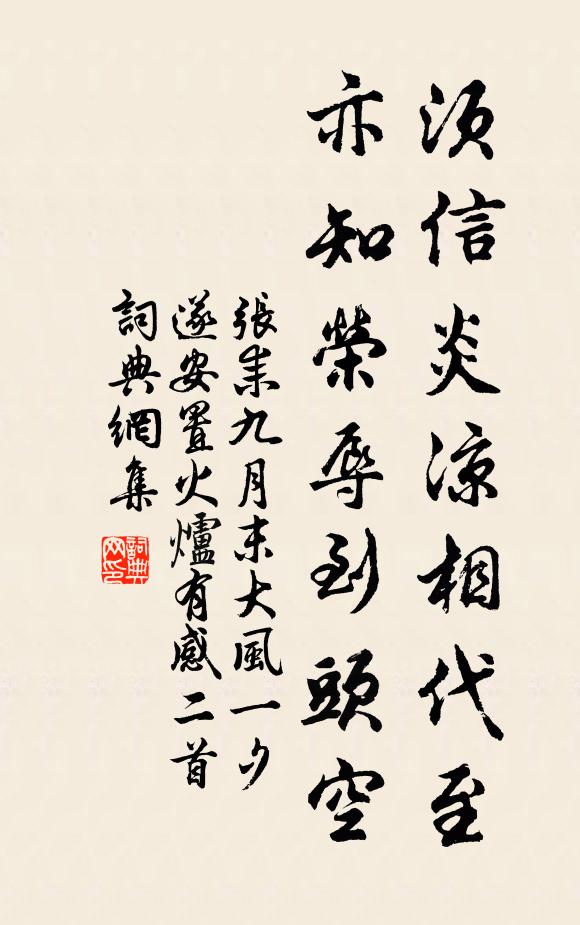 須信炎涼相代至
亦知榮辱到頭空
張耒九月末大風一夕
遂安置火爐有感二首
詞典網集
詞典
网印